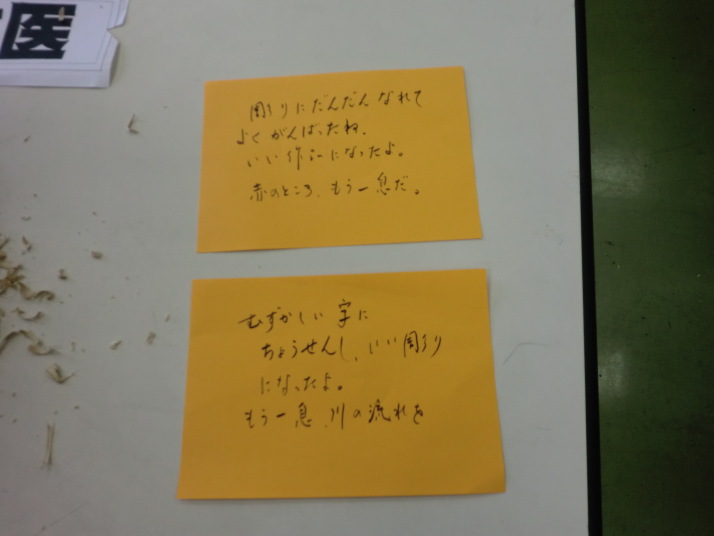 医
彫りにだんだんなれて
よくがんばったね、
いい作品になったよ。
赤のところ、もう一息だ。
むずかしい字に
ちょうせんし、いい彫り
になったよ。
もう一息、川の流れを